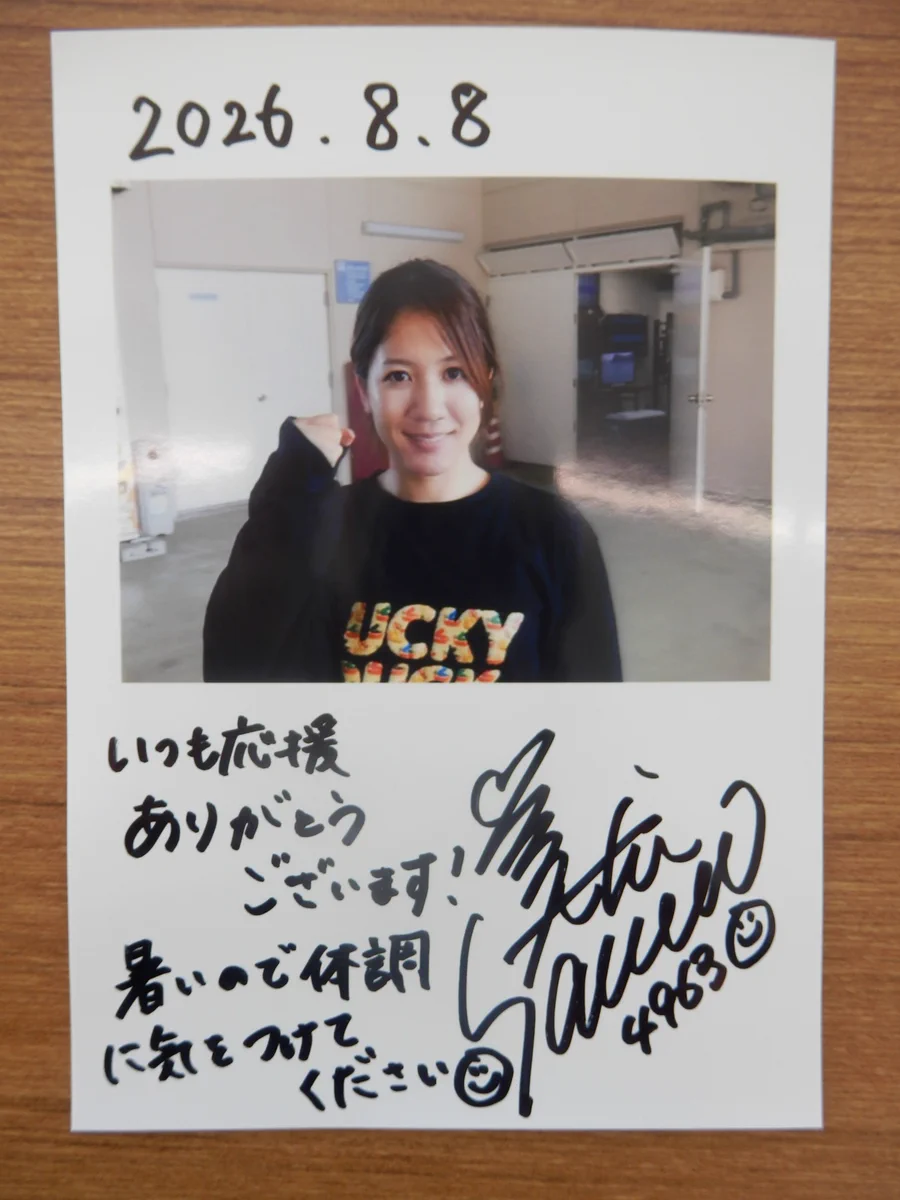 2026.8.8
UCKY
いつも応援
ありがとう
ございます!
暑いので体調
に気をつけて
ください
4963